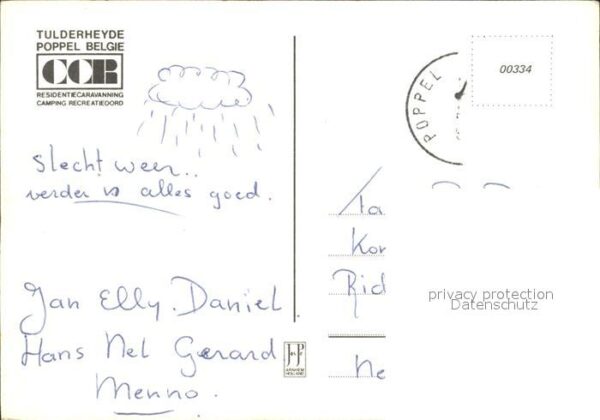 TULDERHEYDE
POPPEL BELGIE
CCR
RESIDENTIECARAVANNING
CAMPING RECREATIEOORD
slecht weer..
verder is alles goed.
Jan Elly. Daniel
Hans Nel Gerard
Menno.
POPPEL
00334
Kor
Rid
Ne
privacy protection
Datenschutz
JosPé
ARNHEM
HOLLAND